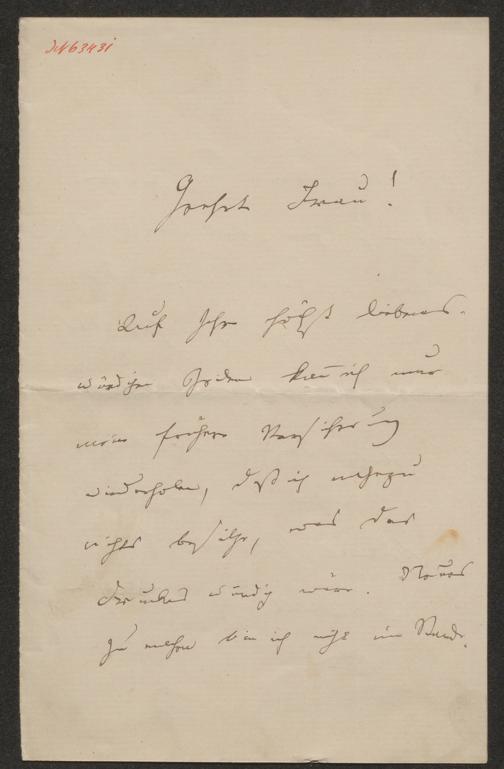 JN 63431
Geehrte Frau!
Auf Ihre höchst liebens-
würdigen Zeilen kann ich nur
meine frühere Versicherung
wiederholen, daß ich nahezu
nichts besitze, was des
Druckes würdig wäre. Neues
zu machen bin ich nicht im Stande.